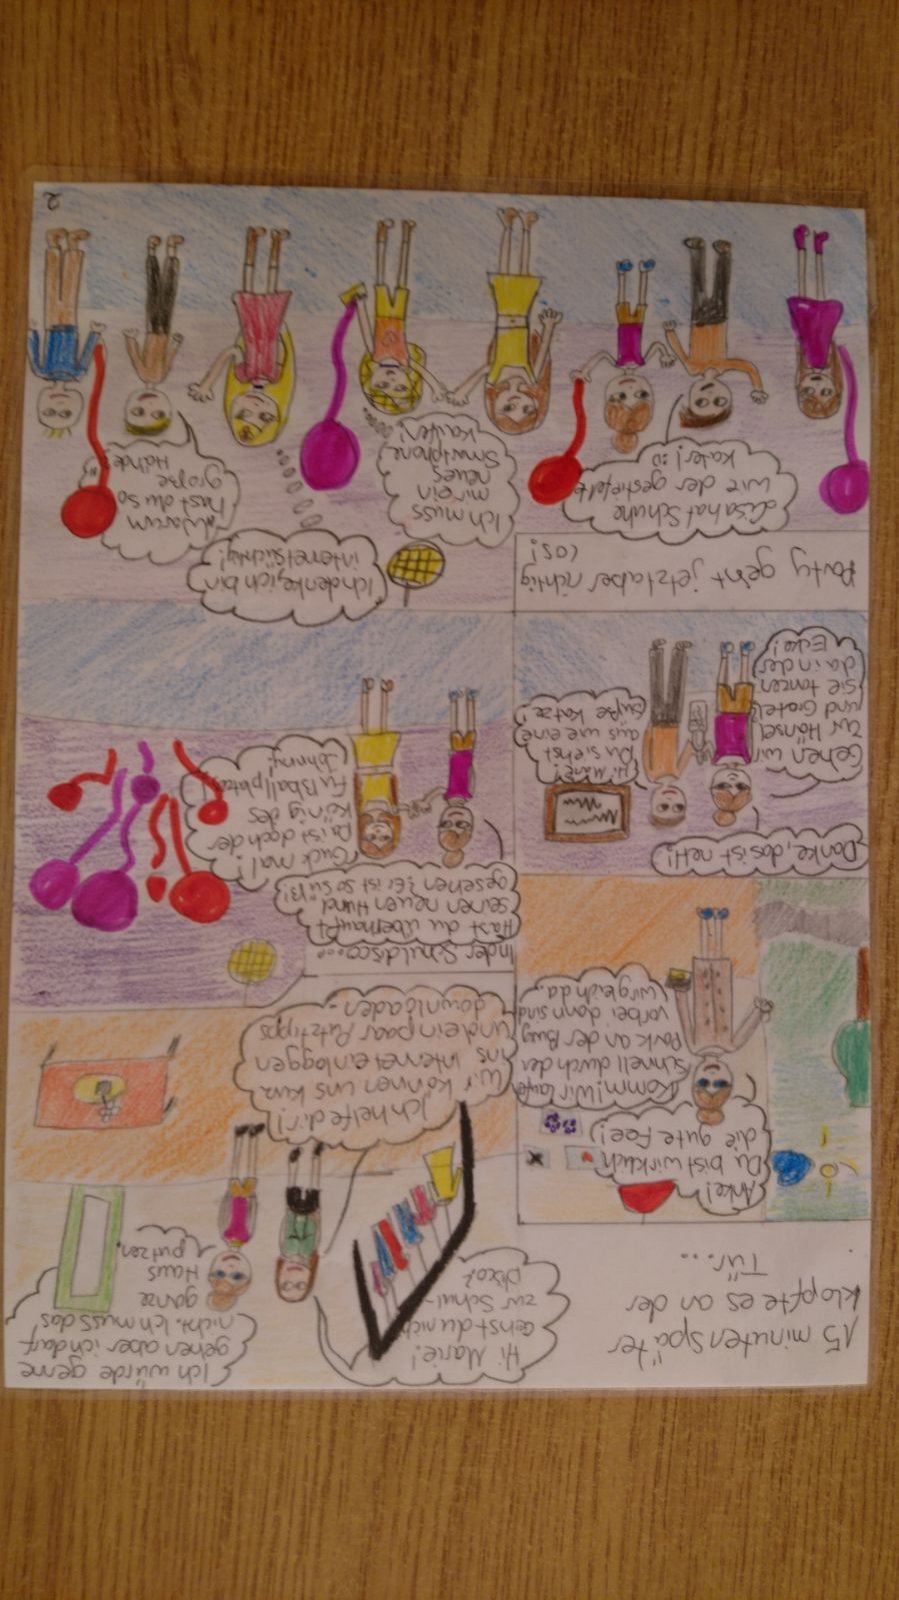 15 minuten später
klopfte es an der
Tür...
Hi Marie!
Gehst du nicht
zur Schul-
Disco?
Ich würde gerne
gehen aber ich darf
nicht. Ich muss das
ganze
Haus
putzen.
Ich helfe dir!
Wir können uns kurz
ins Internet einloggen
und ein paar Putztipps
downloaden.
Anke!
Du bist wirklich
die gute Fee!
Komm! Wir laufen
schnell durch den
Park an der Burg
vorbei dann sind
wir gleich da.
In der Schuldisco...
Hast du überhaupt
seinen neuen Hund
gesehen? Er ist so süß!
Guck mal!
Da ist doch der
König des
Fußballplatzes!
Johnny!
Danke, das ist nett!
Hi Marie!
Du siehst
aus wie eine
süße Katze!
Gehen wir
zur Hänsel
und Gretel?
Sie tanzen
da in der
Ecke!
Party geht jetzt aber richtig
los!
Lisa hat Schuhe
wie der gestiefelte
Kater! :D
Ich muss
mir ein
neues
Smartphone
kaufen!
Ich denke, ich bin
internetsüchtig!
Warum
hast du so
große
Hände?
2